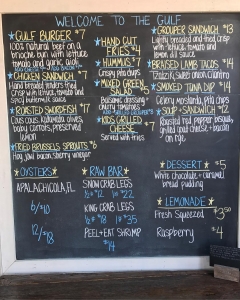 WELCOME TO THE GULF
GULF BURGER $7
100% natural beef on a
brioche bun with lettuce
tomato and garlic aioli
CHICKEN SANDWICH $7
Hand breaded tenders fried
crisp with lettuce, tomato and
spicy buttermilk sauce
ROASTED REDFISH $7
Couscous, kalamata olives,
baby carrots, preserved
lemon
FRIED BRUSSELS SPROUTS $6
Hog jowl bacon, sherry vinegar
HAND CUT
FRIES $4
HUMMUS $7
Crispy pita chips
MIXED GREEN
SALAD $5
Balsamic dressing
cherry tomatoes
KIDS GRILLED
CHEESE $7
Served with fries
GROUPER SANDWICH $13
Lightly breaded and fried crisp
with lettuce, tomato and
lemon dill sauce
BRAISED LAMB TACOS $14
Tzatziki sweet onion cilantro
SMOKED TUNA DIP $14
Celery, mostarda, pita chips
SOUP & SANDWICH $12
Roasted red pepper bisque,
grilled goat cheese + bacon
on rye
OYSTERS
APALACHICOLA, FL
6/$10
12/$18
RAW BAR
SNOW CRAB LEGS
½# $12 1# $22
KING CRAB LEGS
½# $18 1# $35
PEEL+EAT SHRIMP
$14
DESSERT $5
White chocolate + caramel
bread pudding
LEMONADE
Fresh Squeezed $3.50
Raspberry $4